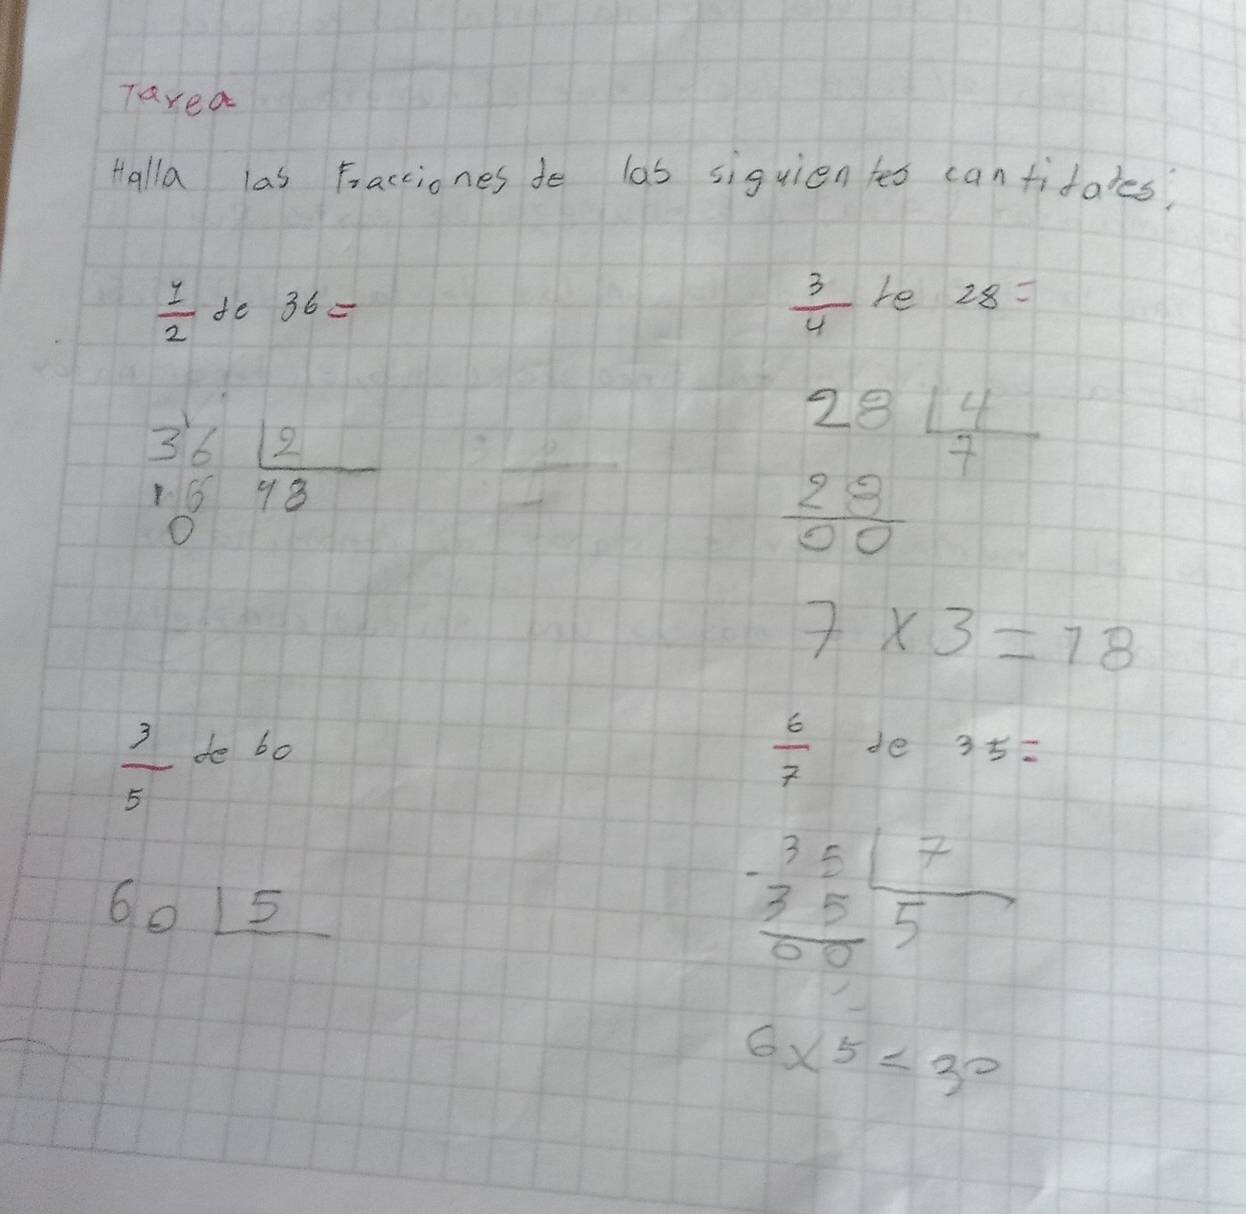 Tarea
Halla las Fracciones de las siguientes cantidades:
1/2 de 36=
36 | 2
16 18
0
3/4 de 28=
28 | 4
7
28
00
7 x 3 = 18
3/5 de 60
60 | 5
6/7 de 35=
-35 | 7
35 5
00
6 x 5 = 30